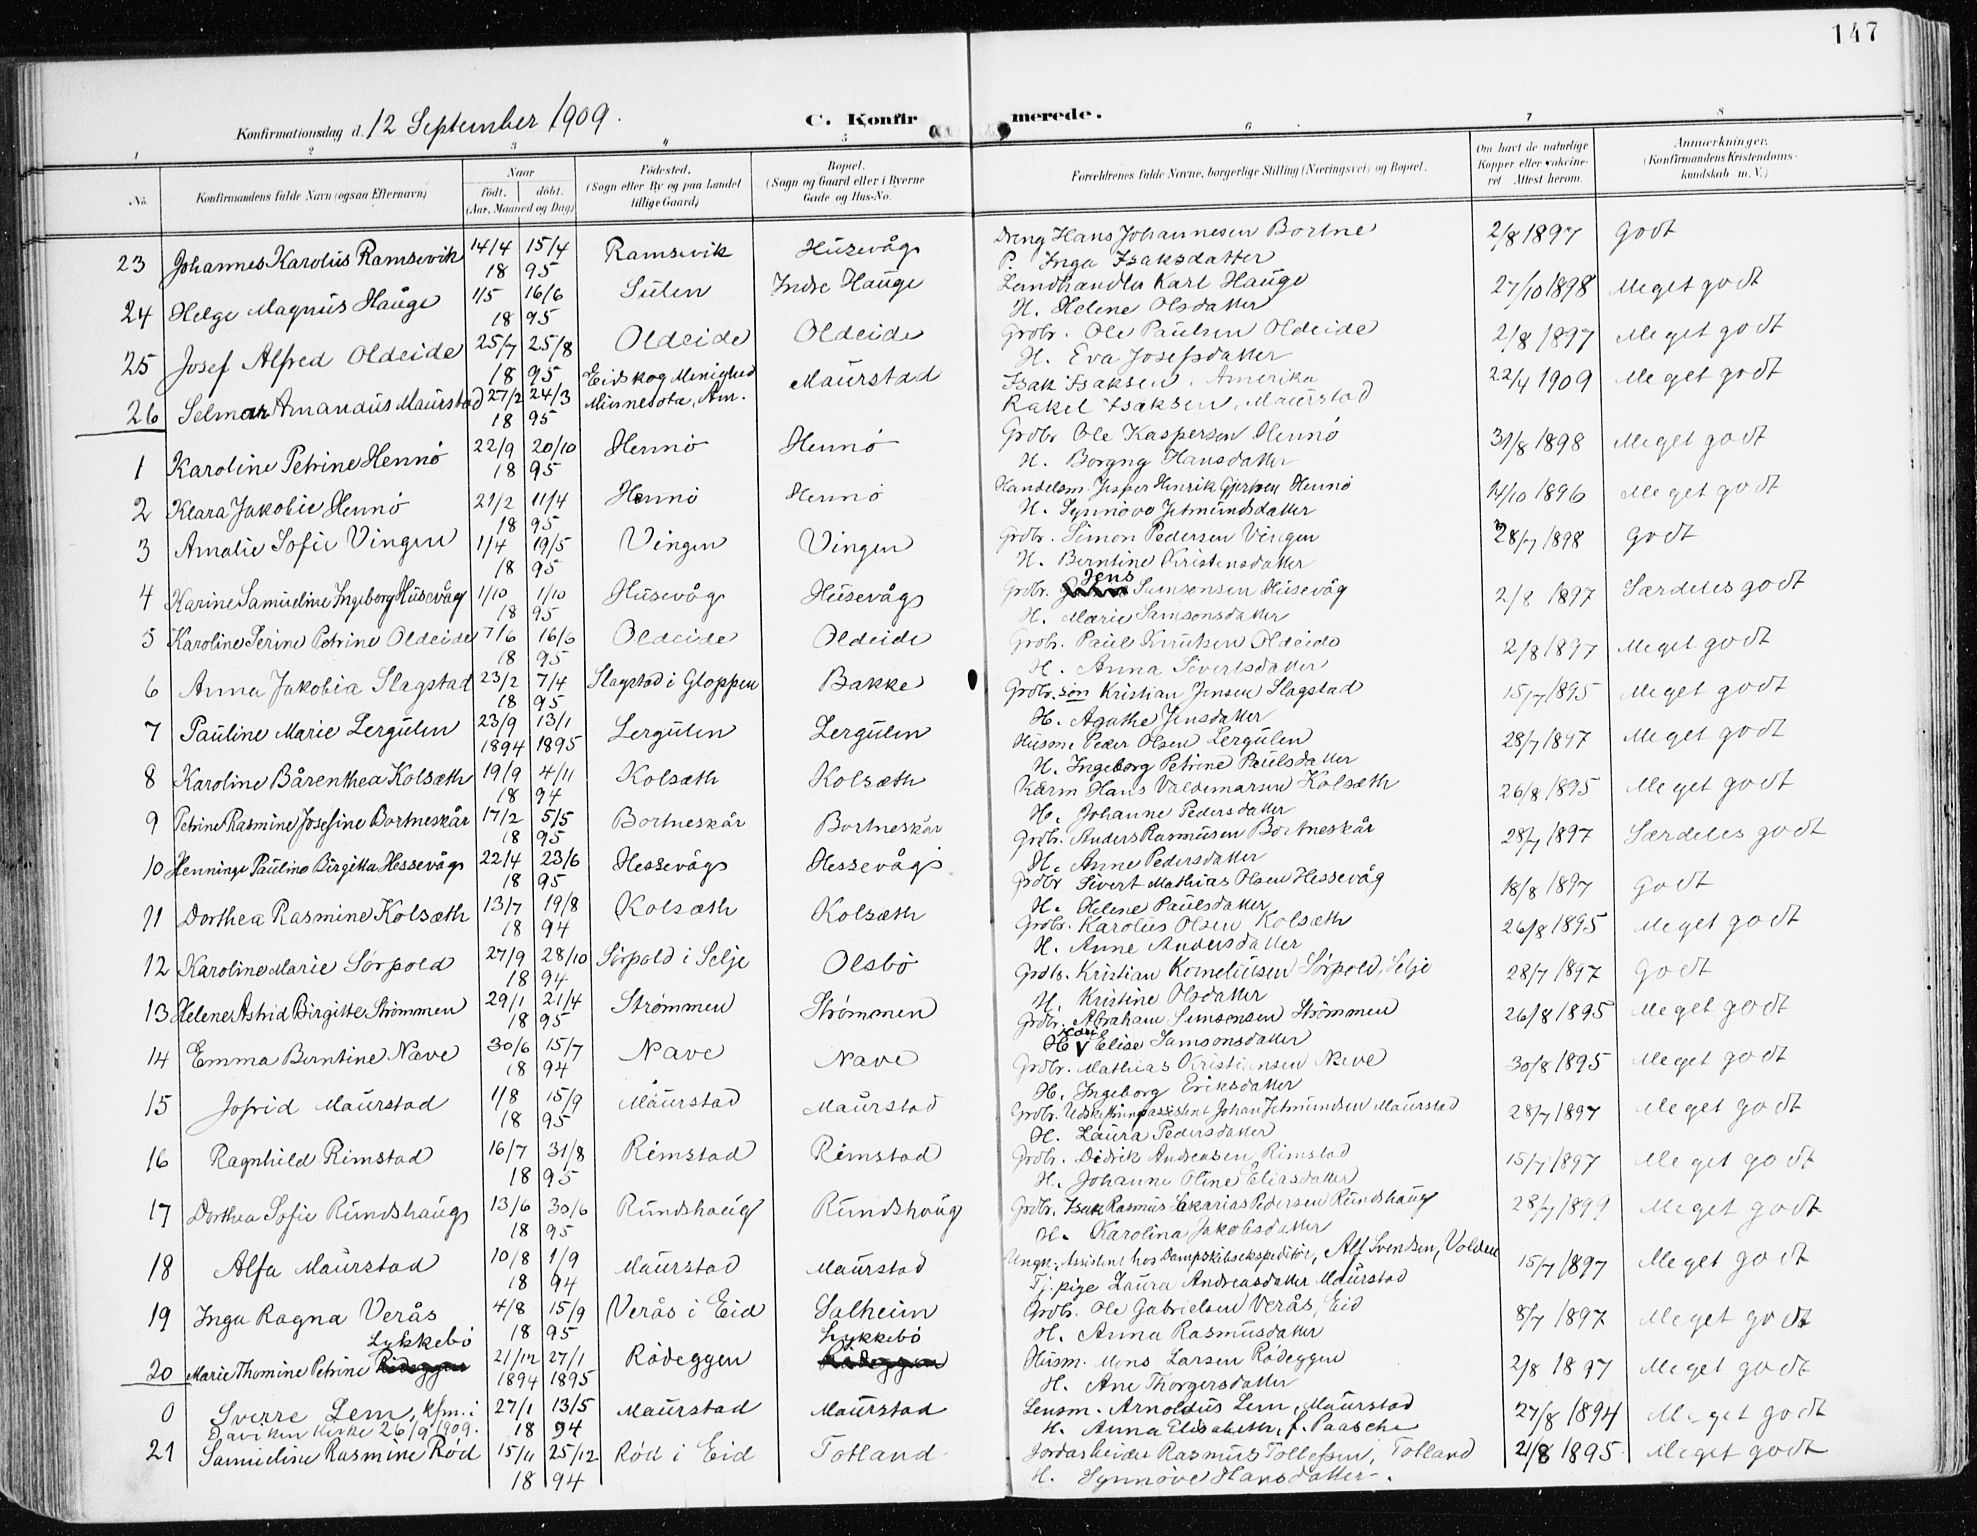 147
Konfirmationsdag d. 12 September 1909. C. Konfirmerede.
1 2 3 4 5 6 7 8
No. Konfirmandens fulde Navn (ogsaa Efternavn) Naar født, døbt. (Aar, Maaned og Dag) Fødested. (Sogn eller By og paa Landet tillige Gaard) Bopæl. (Sogn og Gaard eller i Byerne Gade og Hus-No. Forældrenes fulde Navne, borgerlige Stilling (Næringsvei) og Bopæl. Om havt de naturlige Kopper eller vakcineret. Attest herom. Anmærkninger. (Konfirmandens Kristendomskundskab m. V.)
23 Johannes Karolus Ramsevik 14/4 15/4 Ramsevik Husevåg Dreng Hans Johannesen Bortne 2/8 1897 Godt
18 95 P. Inga Isaksdatter
24 Helge Magnus Hauge 1/5 16/6 Sulen Indre Hauge Landhandler Karl Hauge 27/10 1898 Meget godt
18 95 H. Helene Olsdatter
25 Josef Alfred Oldeide 25/7 25/8 Oldeide Oldeide Grdbr. Ole Paulsen Oldeide 2/8 1897 Meget godt
18 95 H. Eva Josefsdatter
26 Selmar Amandus Maurstad 27/2 24/3 Eidskog Menighed Minnesota, Am. Maurstad Isak Isaksen, Amerika 22/4 1909 Meget godt
18 95 Rakel Isaksen, Maurstad
1 Karoline Petrine Hennø 22/9 20/10 Hennø Hennø Grdbr Ole Kaspersen Hennø 31/8 1898 Meget godt
18 95 H. Borgny Hansdatter
2 Klara Jakobie Hennø 21/2 11/4 Hennø Hennø Handelsm. Jesper Henrik Gjertsen Hennø 14/10 1896 Meget godt
18 95 H. Synnøve Jetmundsdatter
3 Amalie Sofie Vingen 1/4 19/5 Vingen Vingen Grdbr. Simon Pedersen Vingen 28/7 1898 Godt
18 95 H. Berntine Kristensdatter
4 Karine Samueline Ingeborg Husevåg 1/10 1/10 Husevåg Husevåg Grdbr. Jens Samsonsen Husevåg 2/8 1897 Særdeles godt
18 95 H. Marie Samsonsdatter
5 Karoline Serine Petrine Oldeide 7/6 16/6 Oldeide Oldeide Grdbr. Paul Knutsen Oldeide 2/8 1897 Meget godt
18 95 H. Anna Sivertsdatter
6 Anna Jakobia Slagstad 23/2 7/4 Slagstad i Gloppen Bakke Grdbr.søn Kristian Jensen Slagstad 15/7 1895 Meget godt
18 95 H. Agathe Jensdatter
7 Pauline Marie Lergulen 23/9 13/1 Lergulen Lergulen Husm Peder Olsen Lergulen 28/7 1897 Meget godt
1894 1895 H. Ingeborg Petrine Paulsdatter
8 Karoline Bårenthea Kolsæth 19/9 4/11 Kolsæth Kolsæth Kårm Hans Valdemarsen Kolsæth 26/8 1895 Meget godt
18 94 H. Johanne Pedersdatter
9 Petrine Rasmine Josefine Bortneskår 17/2 5/5 Bortneskår Bortneskår Grdbr. Anders Rasmusen Bortneskår 28/7 1897 Særdeles godt
18 95 H. Anne Pedersdatter
10 Henninge Pauline Birgitta Hessevåg 22/4 23/6 Hessevåg Hessevåg Grdbr Sivert Mathias Olsen Hessevåg 18/8 1897 Godt
18 95 H. Helene Paulsdatter
11 Dorthea Rasmine Kolsæth 13/7 19/8 Kolsæth Kolsæth Grdbr. Karolus Olsen Kolsæth 26/8 1895 Meget godt
18 94 H. Anne Andersdatter
12 Karoline Marie Sørpold 27/9 28/10 Sørpold i Selje Olsbø Grdbr. Kristian Korneliusen Sørpold, Selje 28/7 1897 Godt
18 94 H. Kristine Olsdatter
13 Helene Astrid Birgitte Strømmen 29/1 21/4 Strømmen Strømmen Grdbr. Abraham Simonsen Strømmen 26/8 1895 Meget godt
18 95 H. Kari Elise Samsonsdatter
14 Emma Berntine Nave 30/6 15/7 Nave Nave Grdbr. Mathias Kristiansen Nave 30/8 1895 Meget godt
18 94 H. Ingeborg Eriksdatter
15 Jofrid Maurstad 1/8 15/9 Maurstad Maurstad Grdbr. Udskiftningsassistent Johan Jetmundsen Maurstad 28/7 1897 Meget godt
18 95 H. Laura Pedersdatter
16 Ragnhild Rimstad 16/7 31/8 Rimstad Rimstad Grdbr. Didrik Andreasen Rimstad 15/7 1897 Meget godt
18 95 H. Johanne Oline Eliasdatter
17 Dorthea Sofie Rundshaug 13/6 30/6 Rundshaug Rundshaug Grdbr. Isak Rasmus Sakarias Pedersen Rundshaug 28/7 1899 Meget godt
18 95 H. Karolina Jakobsdatter
18 Alfa Maurstad 10/8 1/9 Maurstad Maurstad Ungk. Assistent hos Dampskibsekspeditør, Alf Svendsen, Volden 15/7 1897 Meget godt
18 94 Tj. pige Laura Andreasdatter Maurstad
19 Inga Ragna Verås 4/8 15/9 Verås i Eid Salheim Grdbr. Ole Gabrielsen Verås, Eid 8/7 1897 Meget godt
18 95 H. Anna Rasmusdatter
Lykkebø Lykkebø
20 Marie Thomine Petrine Rødeggen 21/12 27/1 Rødeggen Rødeggen Husm. Mons Larsen Rødeggen 2/8 1897 Meget godt
1894 1895 H. Ane Thorgersdatter
0 Sverre Lem, kfm. i 27/1 13/5 Maurstad Maurstad Lensm. Arnoldus Lem, Maurstad 27/8 1894 Meget godt
Daviken Kirke 26/9 1909. 18 94 H. Anna Elisabeth, f. Paasche
21 Samueline Rasmine Rød 15/11 25/12 Rød i Eid Totland Jordarbeider Rasmus Tollefsen, Totland 21/8 1895. Meget godt
18 94 H. Synnøve Hansdatter.